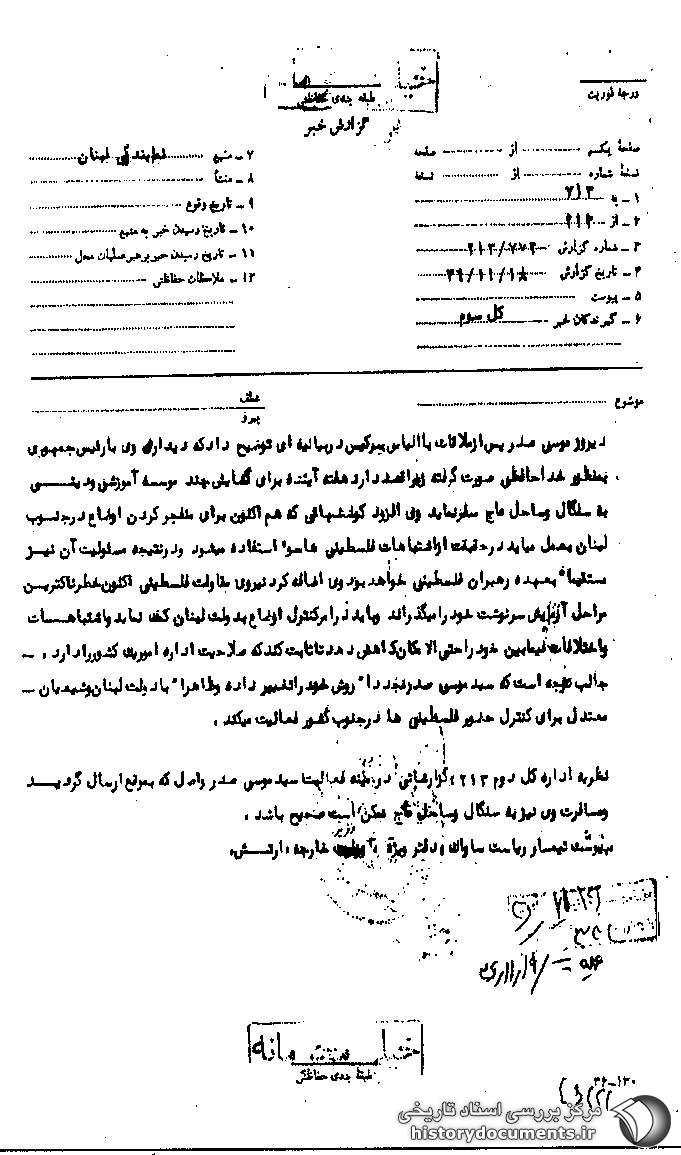 طبقه بندی حفاظتی
درجه فوریت
گزارش خبر
صفحهٔ یکم از صفحه
نسخهٔ شماره از نسخه
۱ ـ به ۷۱۳
۲ ـ از ۲۱۳
۳ ـ شماره گزارش ۲۱۳/۷۷۳
۴ ـ تاریخ گزارش
۵ ـ پیوست
۶ ـ گیرندگان خبر کل سوم
۷ ـ منبع نمایندگی لبنان
۸ ـ منشأ
۹ ـ تاریخ وقوع
۱۰ ـ تاریخ رسیدن خبر به منبع
۱۱ ـ تاریخ رسیدن خبر برهبر عملیات محل
۱۲ ـ ملاحظات حفاظتی
موضوع
عطف
پیرو
دیروز موسی صدر پس از ملاقات با الیاس سرکیس در بیانیه ای توضیح داد که دیدار وی با رئیس جمهوری
بمنظور خداحافظی صورت گرفته زیرا قصد دارد هفته آینده برای گشایش چند موسسه آموزشی و دینی
به سنگال و ساحل عاج سفر نماید وی افزود کوششهائی که هم اکنون برای منفجر کردن اوضاع در جنوب
لبنان بعمل میاید در حقیقت از اشتباهات فلسطینی ها سو استفاده میشود و در نتیجه مسئولیت آن نیز
مستقیما" بعهده رهبران فلسطینی خواهد بود وی اضافه کرد نیروی مقاومت فلسطینی اکنون خطرناکترین
مراحل آزمایش سرنوشت خود را میگذراند و باید در امر کنترل اوضاع بدولت لبنان کمک نماید و اشتباهات
و اختلافات فیمابین خود را حتی الامکان کاهش دهد تا ثابت کند که صلاحیت اداره امور یک کشور را دارد . ـ
جالب توجه است که سید موسی صدر مجددا" روش خود را تغییر داده و ظاهرا" با دولت لبنان و شیعیان ـ
معتدل برای کنترل حضور فلسطینی ها در جنوب کشور فعالیت میکند .
نظریه اداره کل دوم ۲۱۳ : گزارشاتی در زمینه فعالیت سید موسی صدر واصل که بموقع ارسال گردید
ومسافرت وی نیز به سنگال و ساحل عاج ممکن است صحیح باشد .
تیمسار ریاست ساواک ، دفتر ویژه ، وزیر خارجه ، ارتش .
طبقه بندی حفاظتی
۳۲-۱۳۰
مرکز بررسی اسناد تاریخی
historydocuments.ir